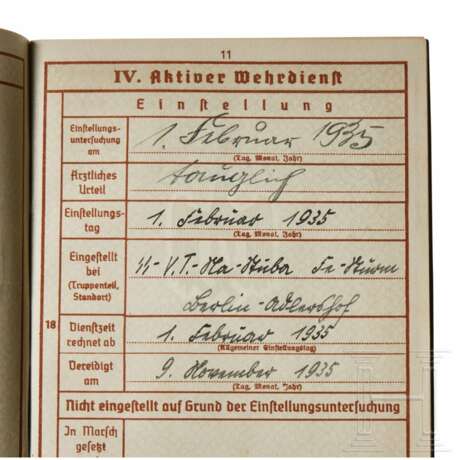 11
IV. Aktiver Wehrdienst
Einstellung
Einstellungs-
untersuchung
am
1. Februar 1935
(Tag, Monat, Jahr)
Ärztliches
Urteil
tauglich
Einstellungs-
tag
1. Februar 1935
(Tag, Monat, Jahr)
Eingestellt
bei
(Truppenteil,
Standort)
SS-V.T.-Na-Stuba Fe-Sturm
Berlin-Adlershof
18
Dienstzeit
rechnet ab
1. Februar 1935
(Allgemeiner Einstellungstag)
Vereidigt
am
9. November 1935
(Tag, Monat, Jahr)
Nicht eingestellt auf Grund der Einstellungsuntersuchung
In Marsch
gesetzt